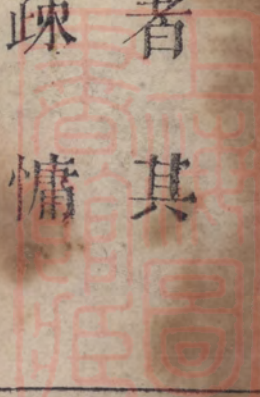 者其
疎慵